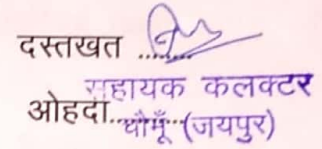 दस्तखत ........
सहायक कलक्टर
ओहदा..........
चौमूँ (जयपुर)